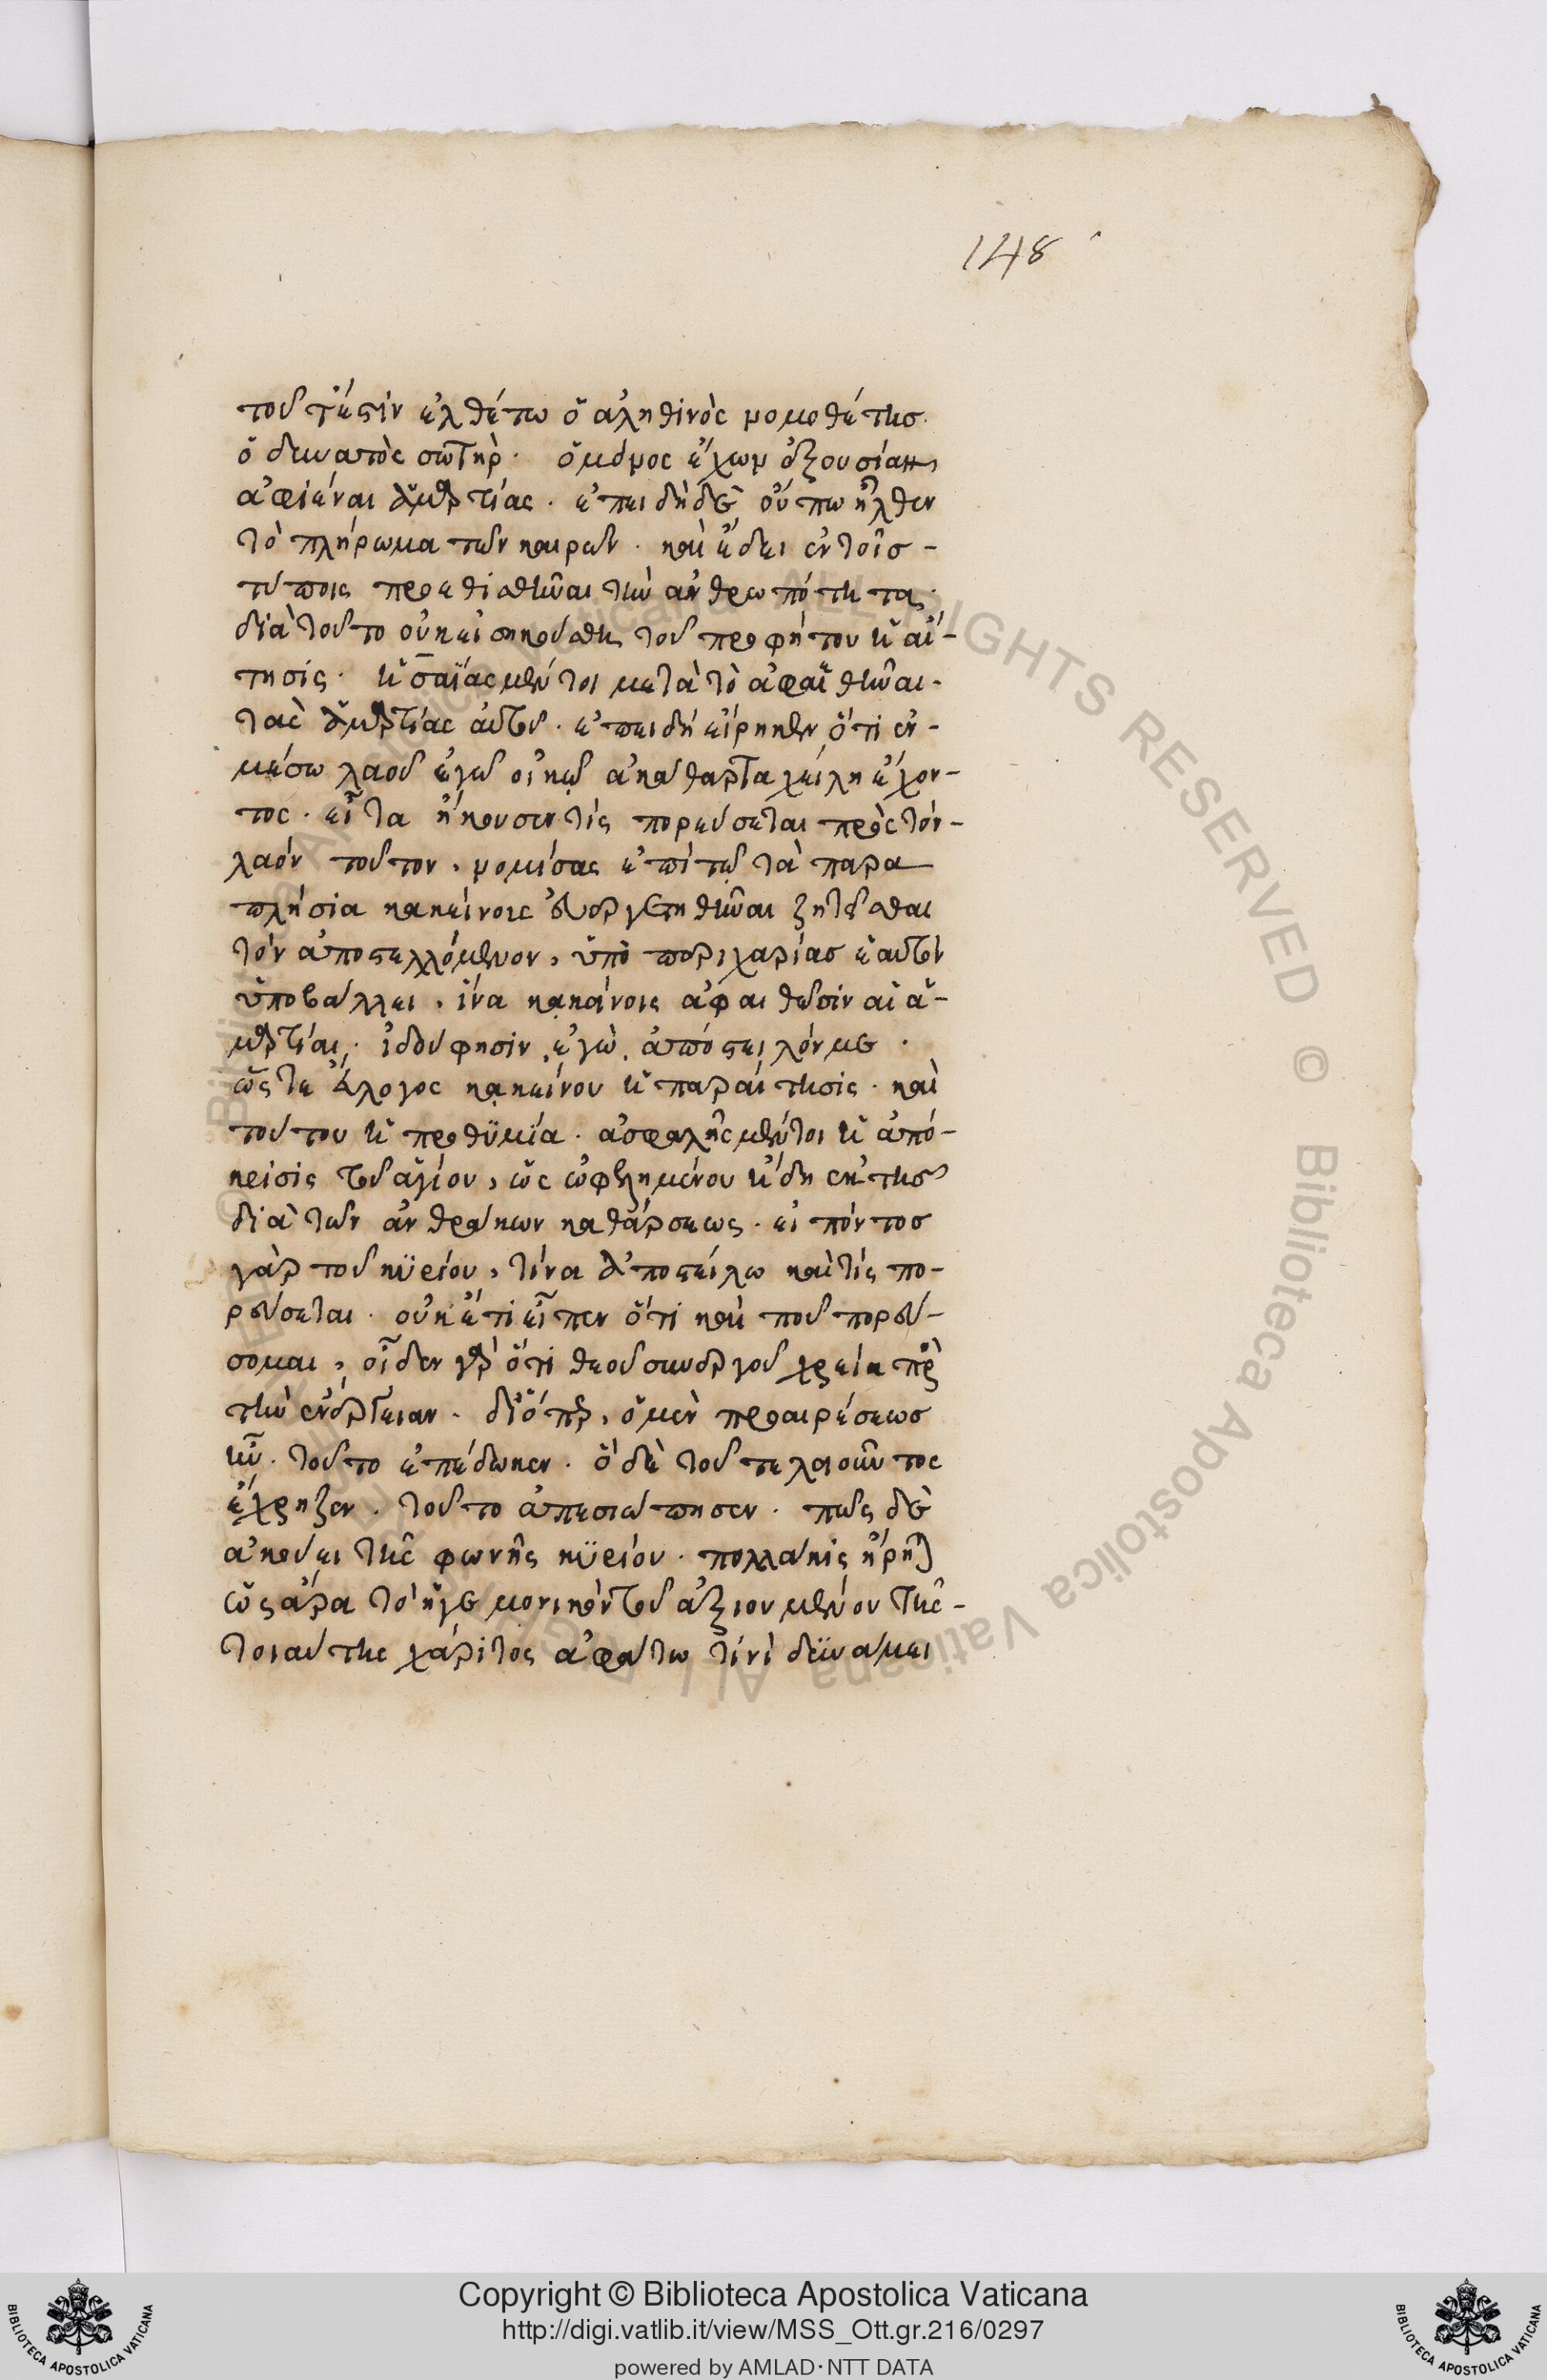 148
τουτέστιν ἐλθέτω ὁ ἀληθινὸς νομοθέτης.
ὁ δυνατὸς σωτὴρ. ὁ μόνος ἔχων ἐξουσίαν
ἀφιέναι ἁμαρτίας. ἐπειδὴ δὲ οὔπω ἦλθεν
τὸ πλήρωμα τῶν καιρῶν. καὶ ἔδει ἐν τοῖς -
τύποις προεθισθῆναι τὴν ἀνθρωπότητα.
διὰ τοῦτο οὐκ εἰσηκούσθη τοῦ προφήτου ἡ αἴ-
τησις. ἡσαΐας μέντοι μετὰ τὸ ἀφαιρεθῆναι -
τὰς ἁμαρτίας αὐτοῦ. ἐπειδὴ εἴρηκεν ὅτι ἐν -
μέσω λαοῦ ἐγὼ οἰκῶ ἀκάθαρτα χείλη ἔχον-
τος. εἶτα ἤκουσεν τίς πορεύσεται πρὸς τὸν -
λαόν τοῦτον, νομίσας ἐπὶ τῶ τὰ παρα
πλήσια κακείνοις εὐεργετηθῆναι ζητεῖσθαι
τὸν ἀποστελλόμενον, ὑπὸ περιχαρίας ἑαυτὸν
ὑποβάλλει, ἵνα κακείνοις ἀφαιρεθῶσιν αἱ ἁ-
μαρτίαι. ἰδού φησιν, ἐγὼ, ἀπόστειλόν με.
ὥστε εὔλογος κακείνου ἡ παραίτησις. καὶ
τούτου ἡ προθυμία. ἀσφαλὴς μέντοι ἡ ἀπό-
κρισις τοῦ ἁγίου, ὡς ὠφελημένου ἤδη ἐκ τῆς
διὰ τῶν ἀνθράκων καθάρσεως. εἰπόντος
γὰρ τοῦ κυρίου, τίνα ἀποστείλω καὶ τίς πο-
ρεύσεται. οὐκέτι εἶπεν ὅτι καὶ πορεύ-
σομαι, οἶδεν γὰρ ὅτι θεοῦ συνεργοῦ χρεία πρὸς
τὴν ἐνέργειαν. διόπερ, ὁ μὲν προαιρέσεως
ἦν. τοῦτο ἐπέδωκεν. ὁ δὲ τοῦ τελειοῦντος
ἔχρηζεν. τοῦτο ἀπεσιώπησεν. πῶς δὲ
ἀκούει τῆς φωνῆς κυρίου. πολλάκις εἴρηται
ὡς ἄρα τὸ ἡγεμονικὸν τοῦ ἀξιουμένου τῆς -
τοιαύτης χάριτος ἀφάτω τινὶ δυνάμει
Copyright © Biblioteca Apostolica Vaticana
http://digi.vatlib.it/view/MSS_Ott.gr.216/0297
powered by AMLAD·NTT DATA